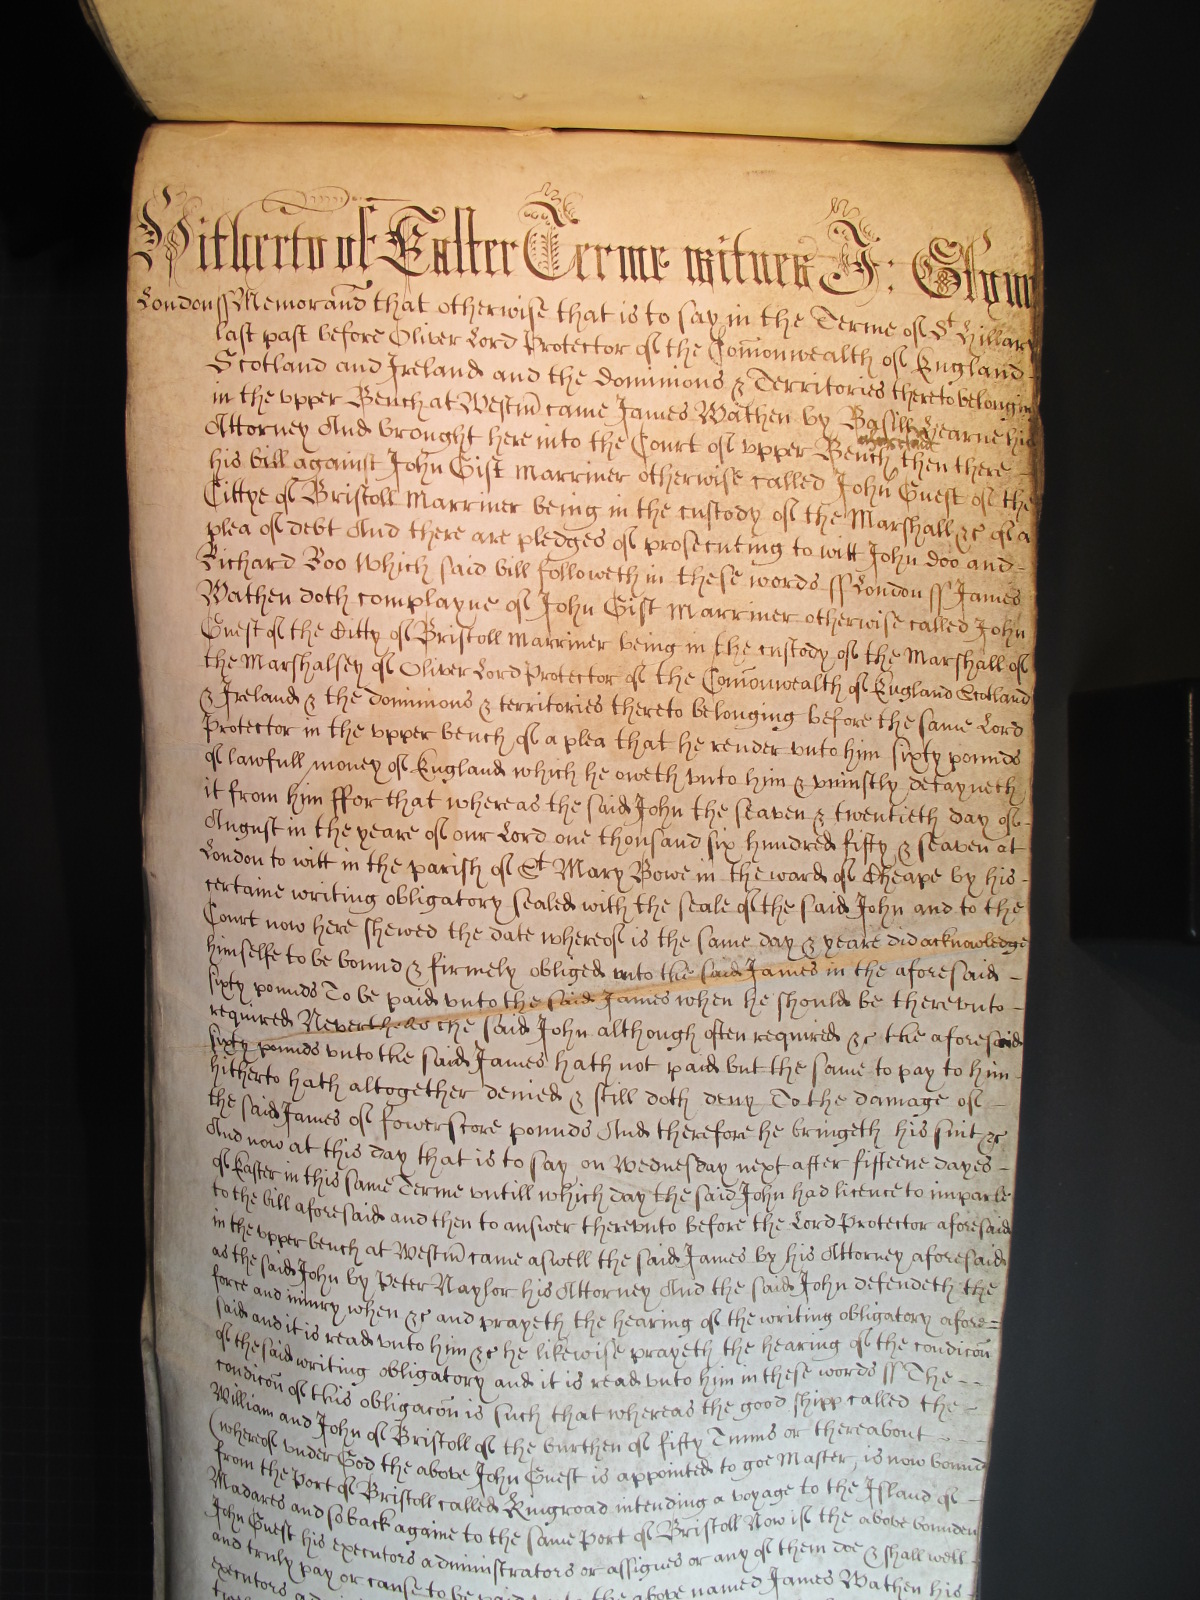 Hitherto of Easter Terme witnes J: Glynn
London ss Memorand that otherwise that is to say in the Terme of St Hillary
last past before Oliver Lord Protector of the Comonwealth of England
Scotland and Ireland and the dominions & Territories thereto belonging
in the upper Bench at Westm came James Wathen by Basill Hearne his
Attorney And brought here into the Court of upper Bench then there
his bill against John Gist Marriner otherwise called John Guest of the
Cittye of Bristoll Marriner being in the custody of the Marshall &c of a
plea of debt And there are pledges of prosecuting to witt John doo and
Richard Roo Which said bill followeth in these words ss London ss James
Wathen doth complayne of John Gist Marriner otherwise called John
Guest of the Citty of Bristoll Marriner being in the custody of the Marshall of
the Marshalsey of Oliver Lord Protector of the Comonwealth of England Scotland
& Ireland & the dominions & territories thereto belonging before the same Lord
Protector in the upper bench of a plea that he render unto him sixty pounds
of lawfull money of England which he oweth unto him & uniustly detayneth
it from him ffor that whereas the said John the seaven & twentieth day of
August in the yeare of our Lord one thousand six hundred fifty & seaven at
London to witt in the parish of St Mary Bowe in the ward of Cheape by his
certaine writing obligatory sealed with the seale of the said John and to the
Court now here shewed the date whereof is the same day & yeare did acknowledge
himselfe to be bound & firmely obliged unto the said James in the aforesaid
sixty pounds To be paid unto the said James when he should be thereunto
required Neverthelес the said John although often required &c the aforesaid
sixty pounds unto the said James hath not paid but the same to pay to him
hitherto hath altogether denied & still doth deny To the damage of
the said James of fowerscore pounds And therefore he bringeth his suit &c
And now at this day that is to say on Wednesday next after fifteene dayes
of Easter in this same Terme untill which day the said John had licence to imparle
to the bill aforesaid and then to answer thereunto before the Lord Protector aforesaid
in the upper bench at Westm came aswell the said James by his Attorney aforesaid
as the said John by Peter Naylor his Attorney And the said John defendeth the
force and iniury when &c and prayeth the hearing of the writing obligatory afore=
said and it is read unto him &c he likewise prayeth the hearing of the condicon
of the said writing obligatory and it is read unto him in these words ss The
condicon of this obligacon is such that whereas the good shipp called the
William and John of Bristoll of the burthen of fifty Tunns or thereabout
(whereof under God the above John Guest is appointed to goe Master, is now bound
from the Port of Bristoll called Kingroad intending a voyage to the Island of
Madares and so back againe to the same Port of Bristoll Now if the above bounden
John Guest his executors administrators or assignes or any of them doe & shall well
and truly pay or cause to be paid unto the above named James Wathen his
executors